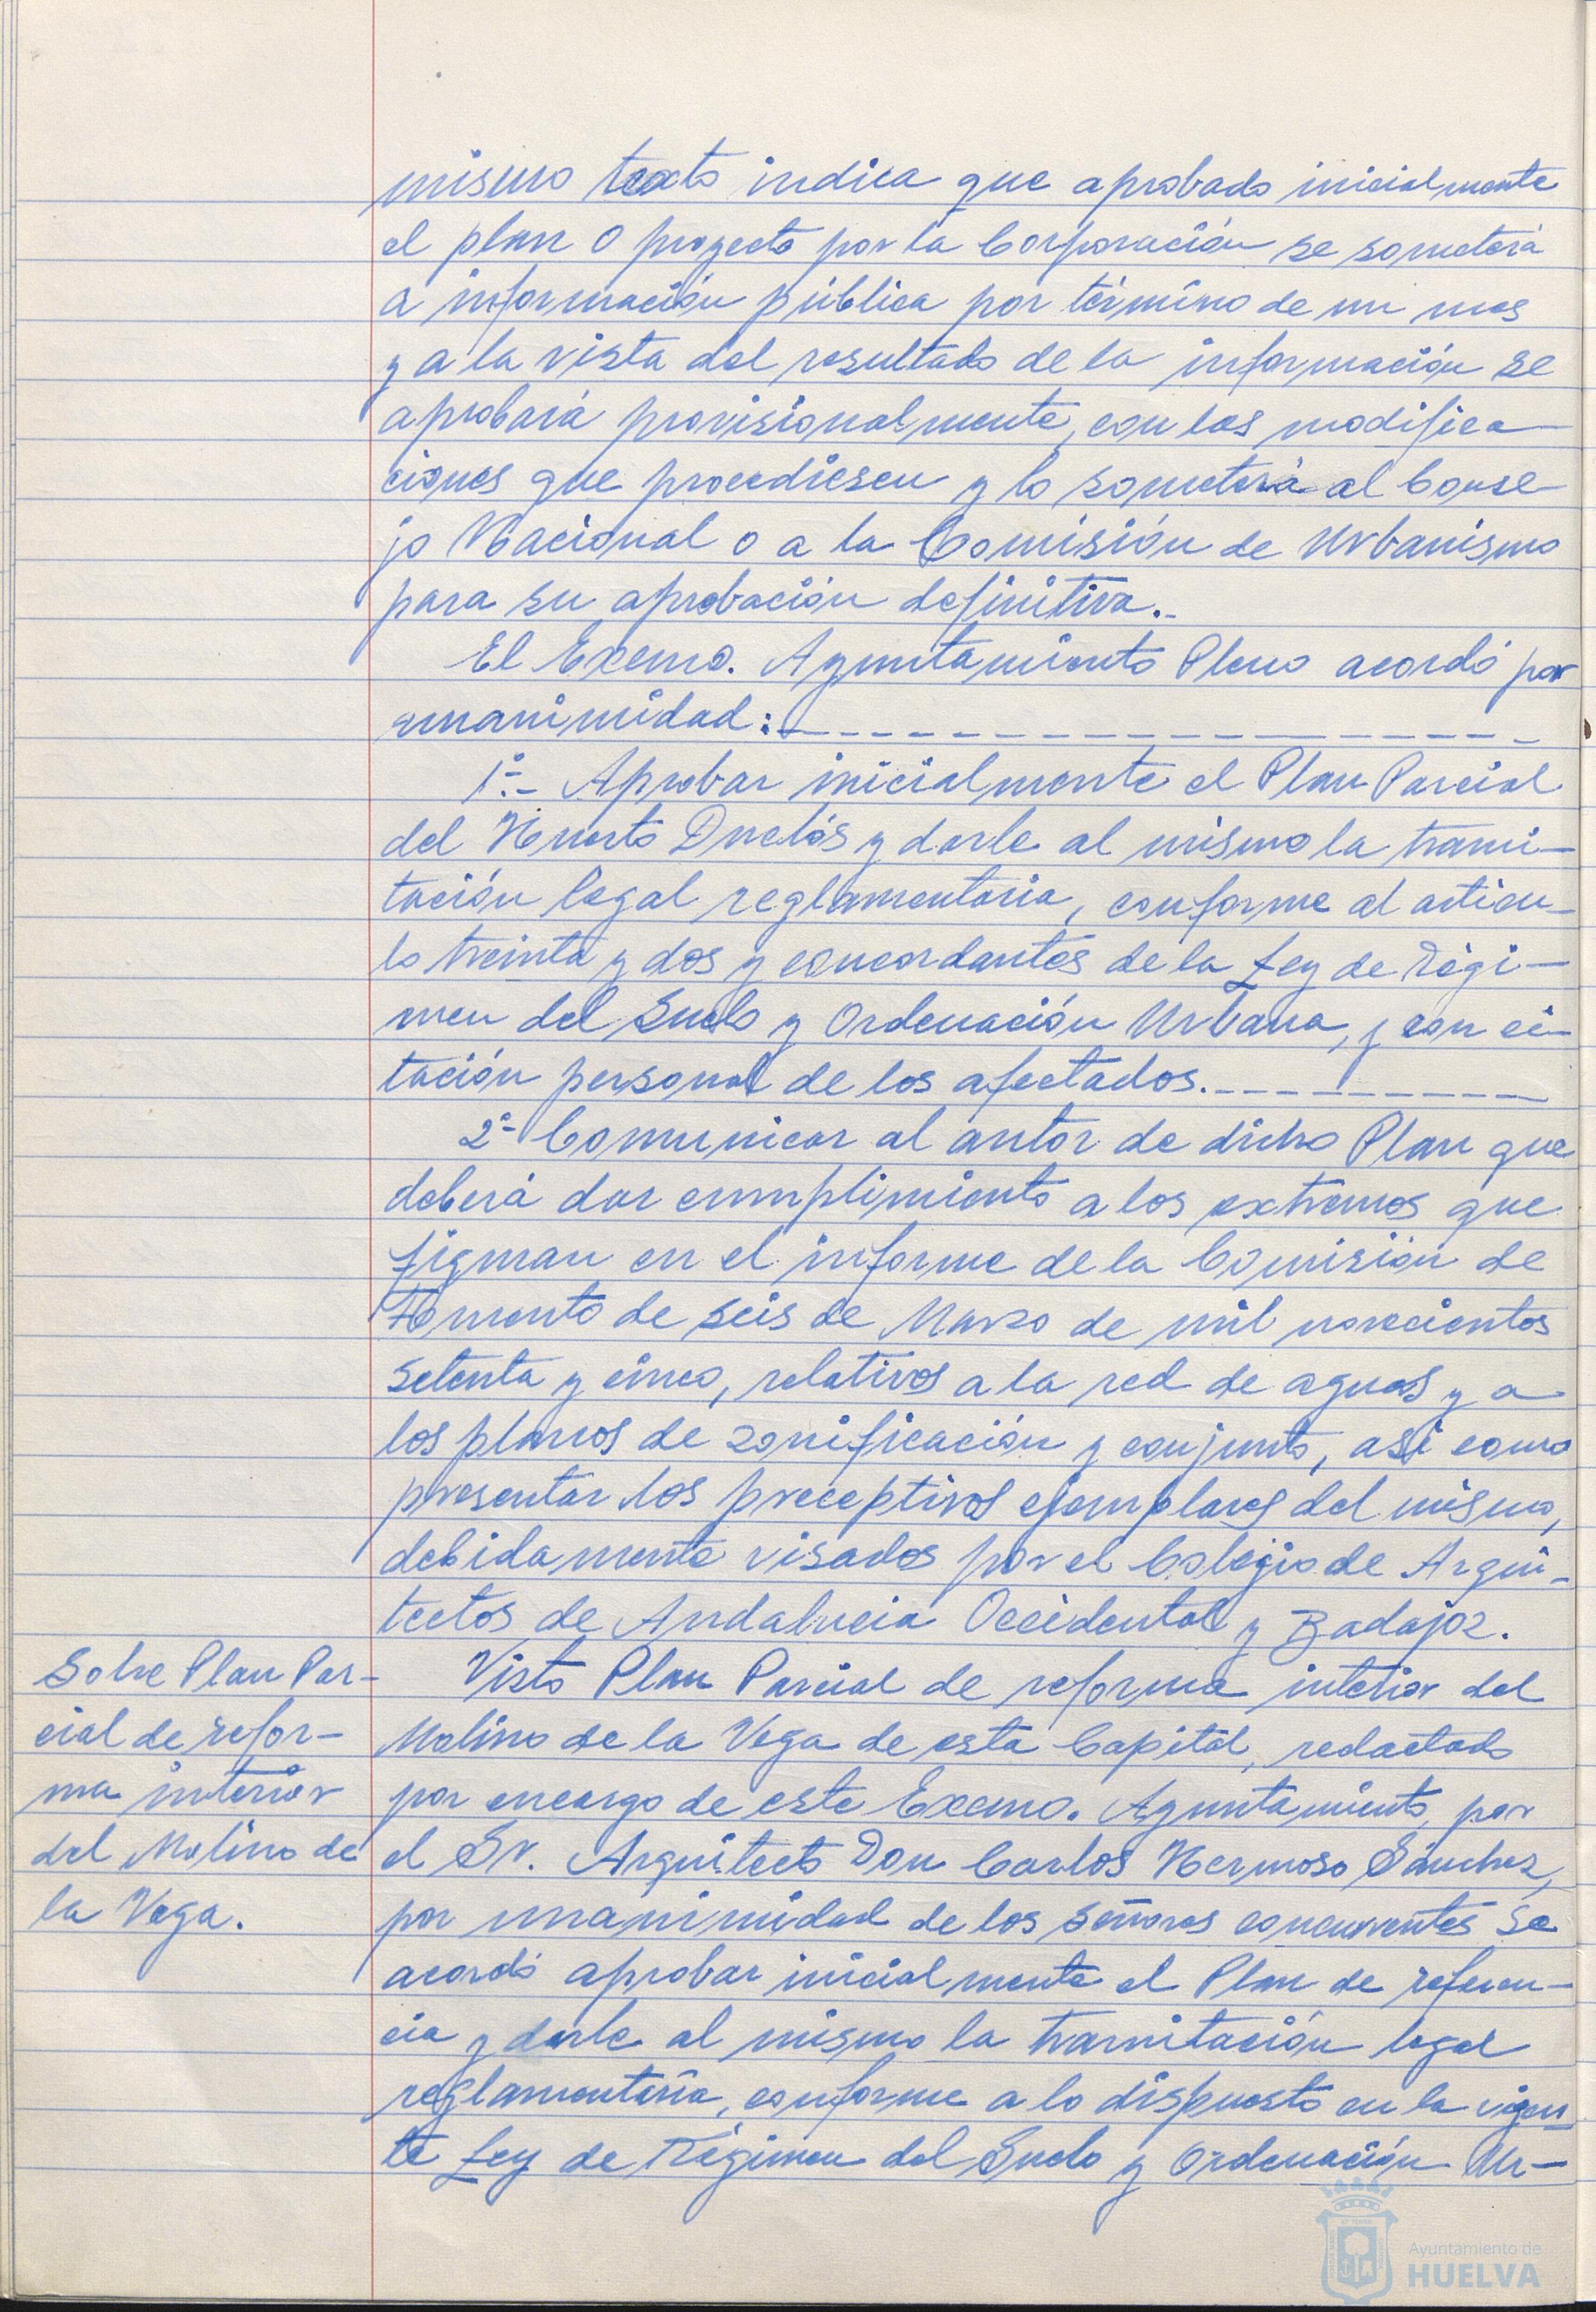 mismo texto indica que aprobado inicialmente
el plan o proyecto por la Corporación se someterá
a información pública por término de un mes
y a la vista del resultado de la información se
aprobará provisionalmente, con las modifica-
ciones que procediesen y lo someterá al Conse-
jo Nacional o a la Comisión de Urbanismo
para su aprobación definitiva.-
El Excmo. Ayuntamiento Pleno acordó por
unanimidad:
1º.- Aprobar inicialmente el Plan Parcial
del Huerto Duclós y darle al mismo la trami-
tación legal reglamentaria, conforme al artícu-
lo treinta y dos y concordantes de la Ley de Régi-
men del Suelo y Ordenación Urbana, y con ci-
tación personal de los afectados.
2º- Comunicar al autor de dicho Plan que
deberá dar cumplimiento a los extremos que
figuran en el informe de la Comisión de
Fomento de seis de Marzo de mil novecientos
setenta y cinco, relativos a la red de aguas y a
los planos de zonificación y conjunto, así como
presentar los preceptivos ejemplares del mismo,
debidamente visados por el Colegio de Arqui-
tectos de Andalucía Occidental y Badajoz.
Sobre Plan Par-
cial de refor-
ma interior
del Molino de
la Vega.
Visto Plan Parcial de reforma interior del
Molino de la Vega de esta Capital, redactado
por encargo de este Excmo. Ayuntamiento, por
el Sr. Arquitecto Don Carlos Hermoso Sánchez,
por unanimidad de los señores concurrentes se
acordó aprobar inicialmente el Plan de referen-
cia y darle al mismo la tramitación legal
reglamentaria, conforme a lo dispuesto en la vigen-
te Ley de Régimen del Suelo y Ordenación Ur-
Ayuntamiento de
HUELVA